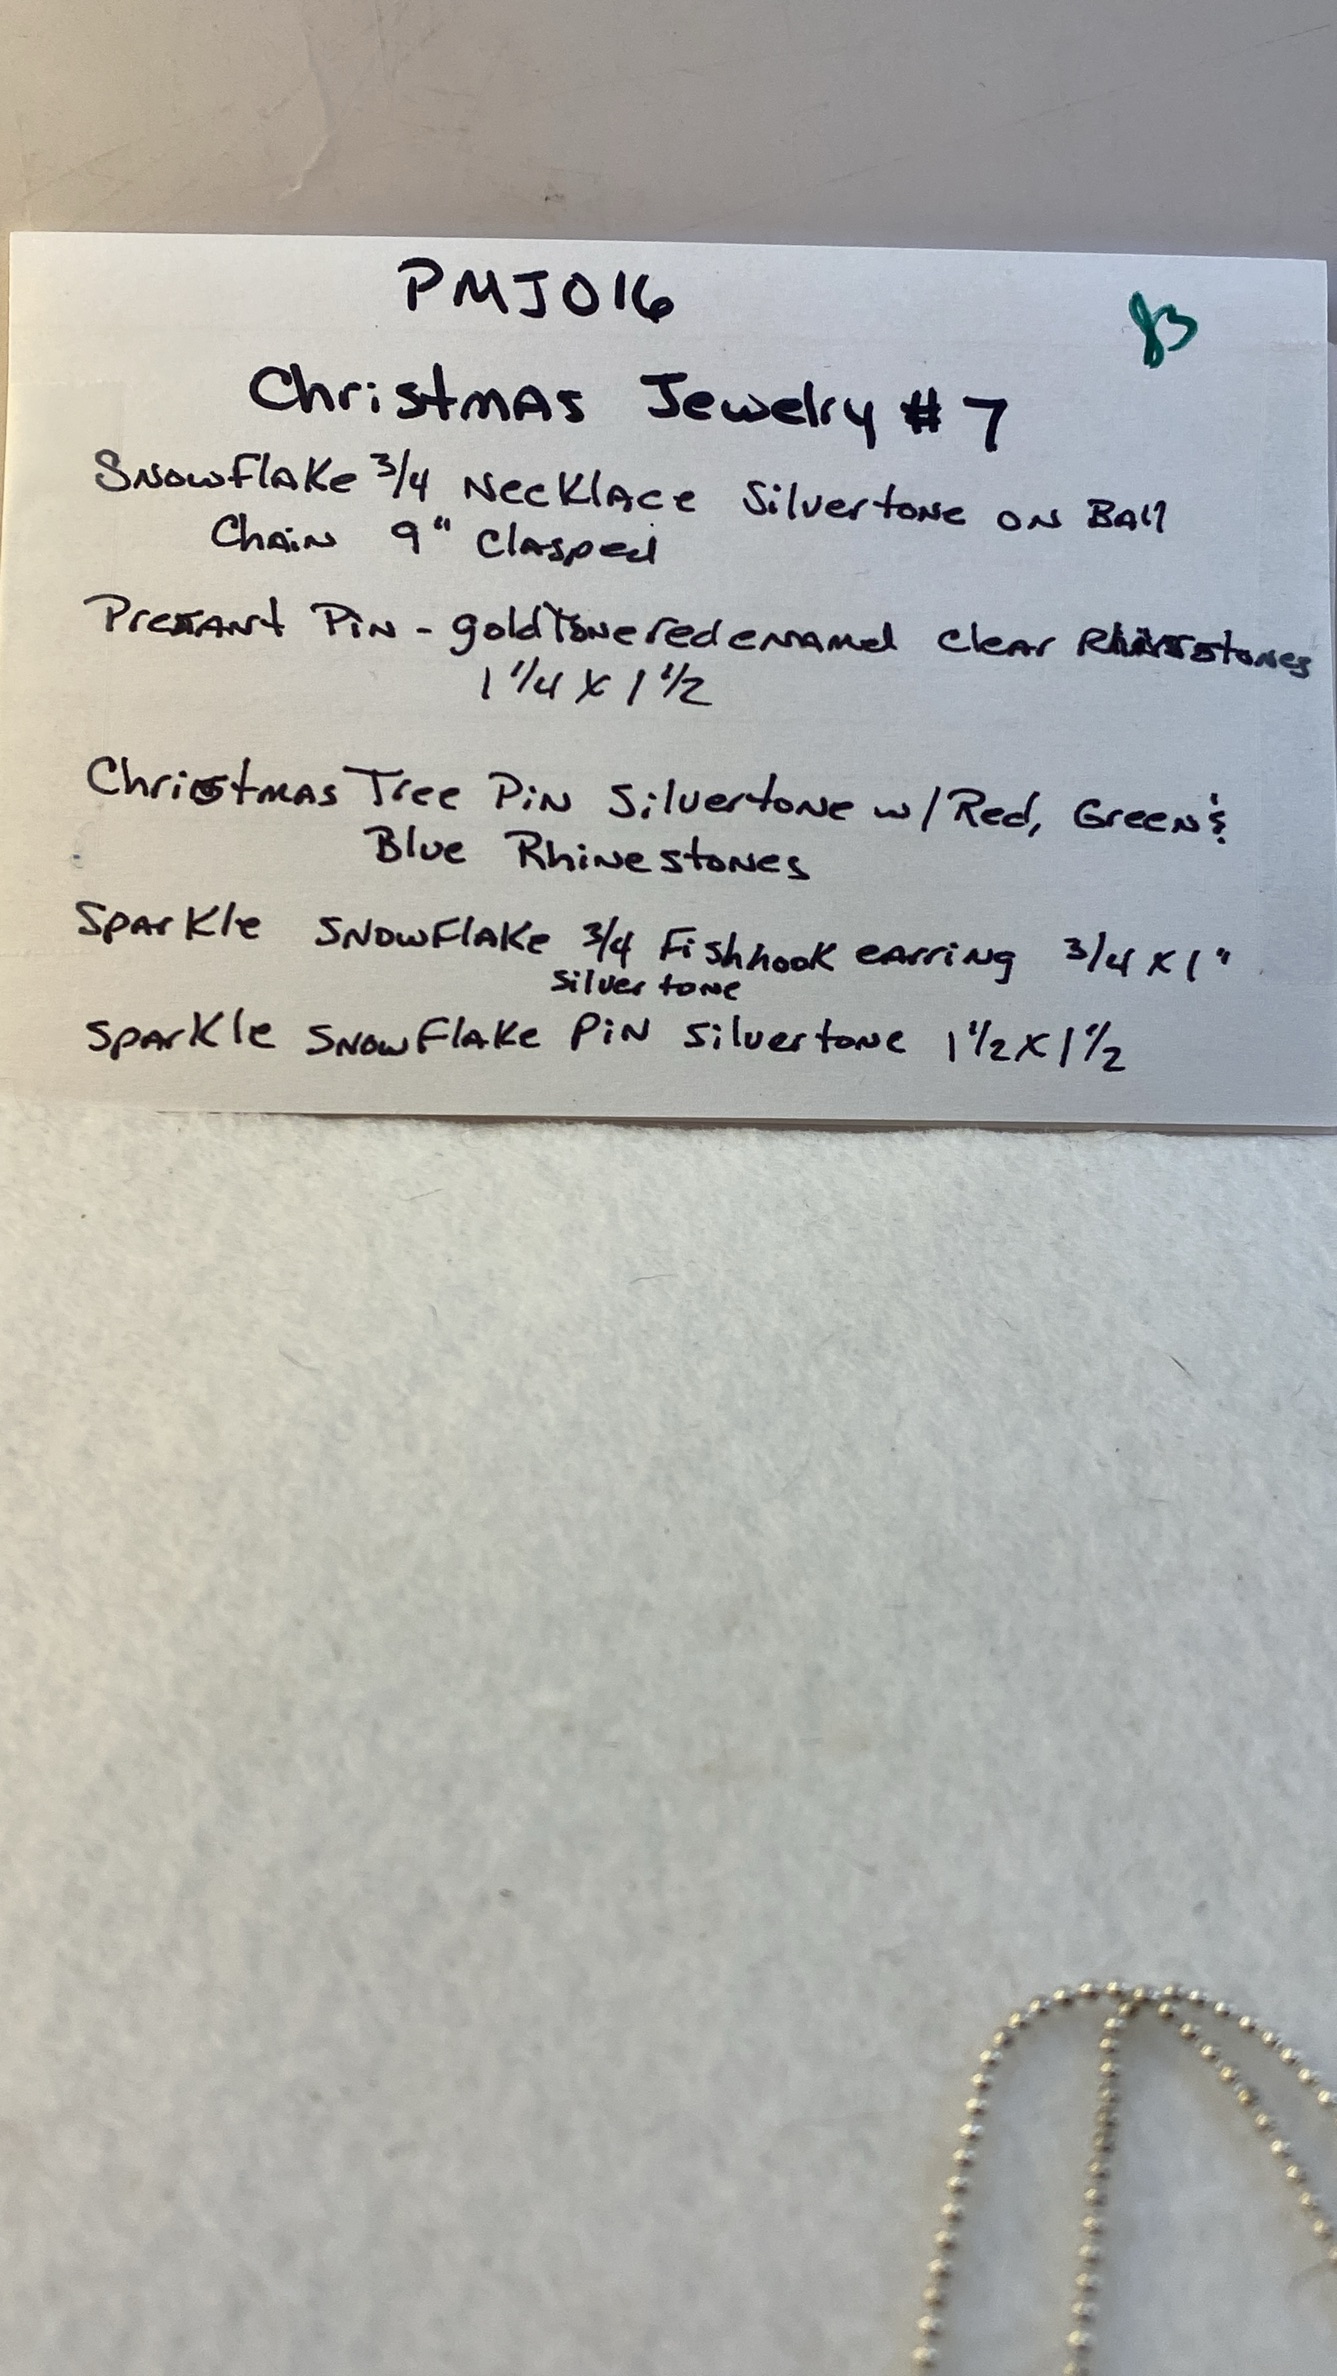 PMJ016
83
Christmas Jewelry #7
Snowflake 3/4 Necklace Silvertone on Ball
Chain 9" Clasped
Presant Pin - goldtone red enamel clear Rhinestones
1 1/4 x 1 1/2
Christmas Tree Pin Silvertone w/Red, Green &
Blue Rhinestones
Sparkle Snowflake 3/4 Fishhook earring 3/4 x 1"
Silvertone
Sparkle Snowflake Pin Silvertone 1 1/2 x 1 1/2